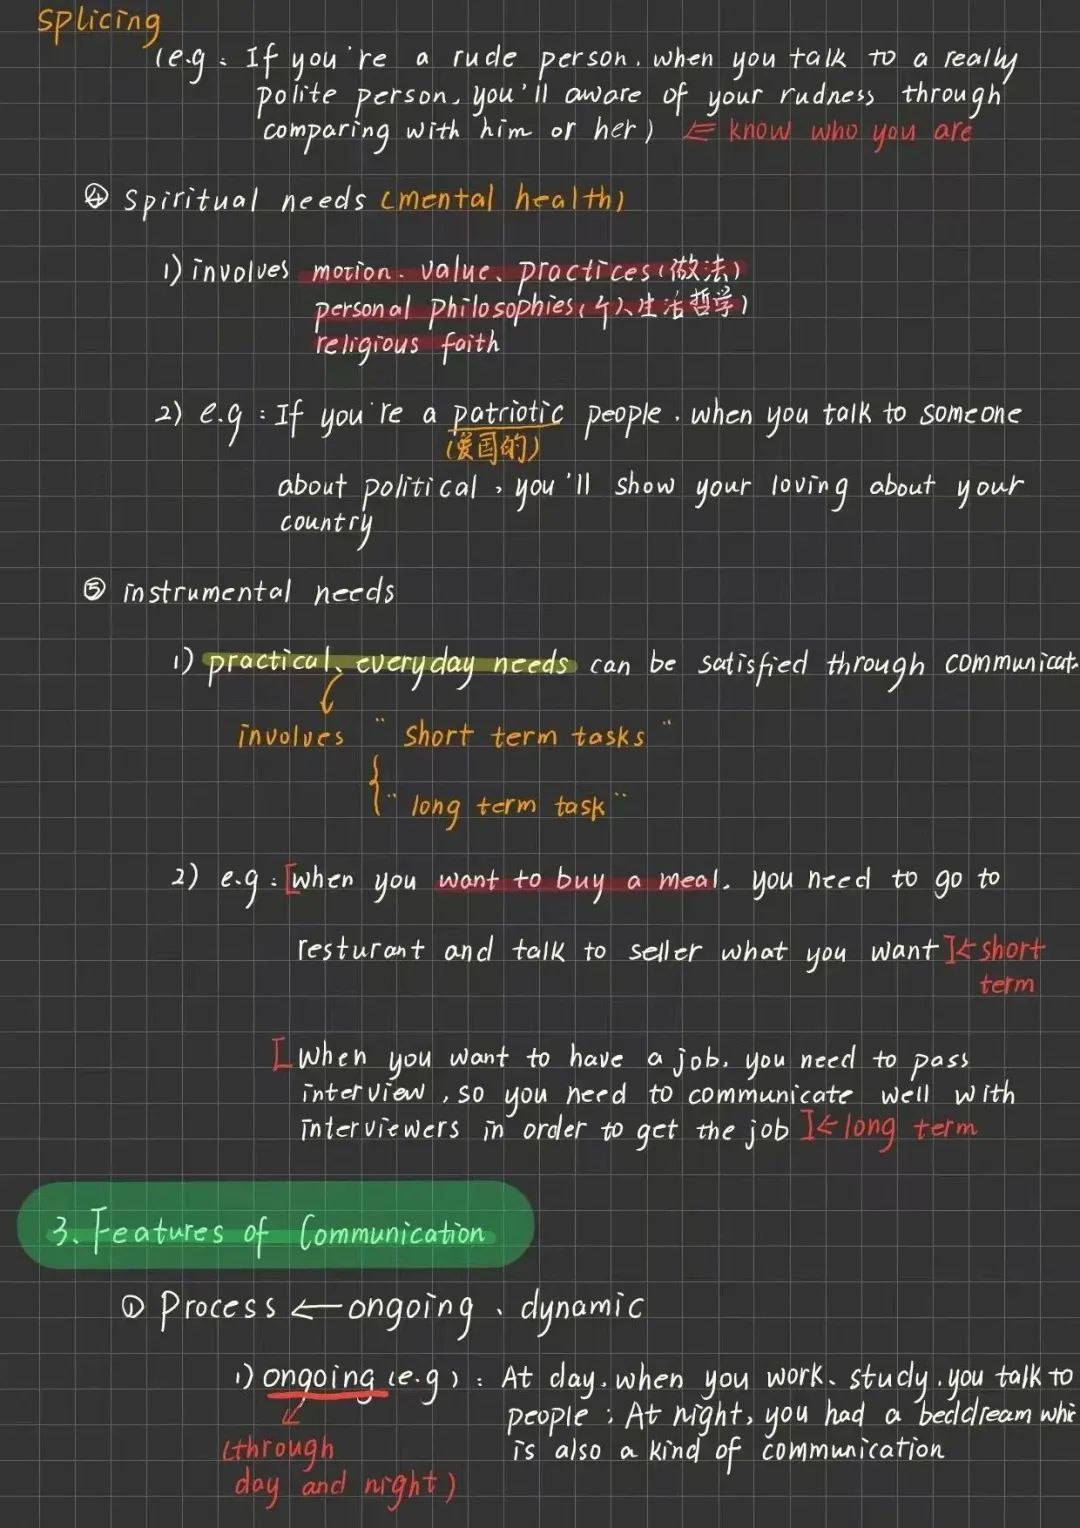 splicing
(e.g: If you're a rude person, when you talk to a really
polite person, you'll aware of your rudness through
comparing with him or her) ⇐ know who you are
④ spiritual needs (mental health)
1) involves motion、value、practices(做法)
personal philosophies(个人生活哲学)
religious faith
2) e.g: If you're a patriotic people, when you talk to someone
(爱国的)
about political, you'll show your loving about your
country
⑤ instrumental needs
1) practical、everyday needs can be satisfied through communicat
involves "short term tasks"
{"long term task"
2) e.g: [when you want to buy a meal, you need to go to
resturant and talk to seller what you want]← short
term
[When you want to have a job, you need to pass
interview, so you need to communicate well with
interviewers in order to get the job]← long term
3. Features of Communication
① Process ← ongoing、dynamic
1) ongoing (e.g): At day, when you work、study, you talk to
people; At night, you had a beddream whi
(through is also a kind of communication
day and night)